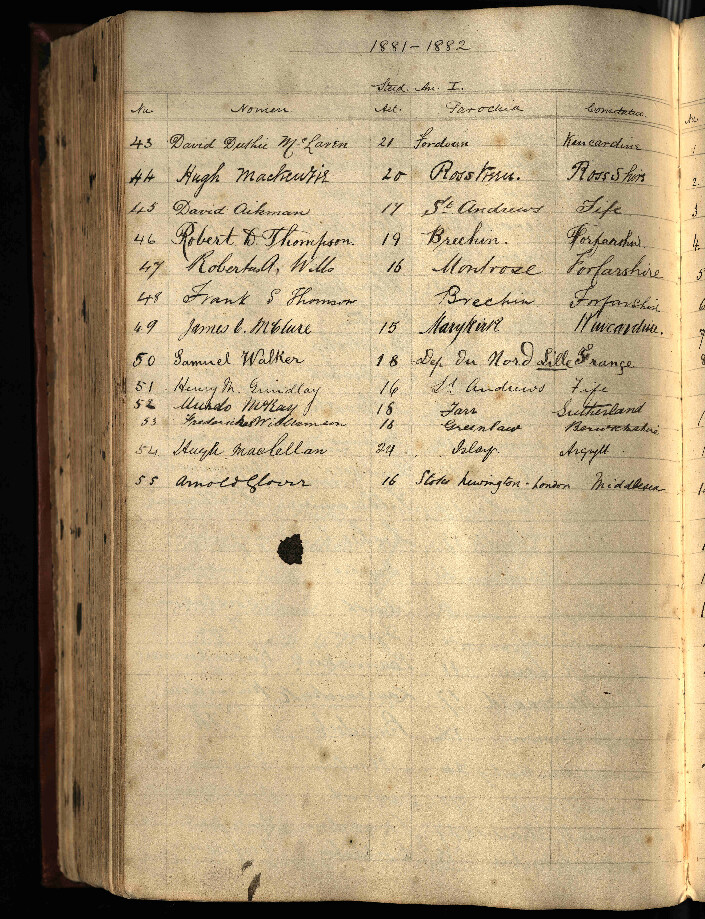 1881-1882
Stud. An. I.
No. Nomen Aet. Parochia Comitatus. No.
43 David Duthie McLaren 21 Fordoun Kincardine
44 Hugh Mackenzie 20 Rosskeen. Ross Shire
45 David Aikman 17 St Andrews Fife
46 Robert D. Thompson. 19 Brechin. Forfarshire.
47 Robert A. Mills 16 Montrose Forfarshire
48 Frank S Thomson Brechin Forfarshire
49 James C. McClure 15 Marykirk Kincardine.
50 Samuel Walker 18 Dep du Nord Lille France
51 Henry M. Gundlay 16 St Andrews Fife
52 Mundo McKay 18 Farr Sutherland
53 Frederick Williamson 16 Greenlaw Berwickshire
54 Hugh MacLellan 29 Islay. Argyll.
55 Arnold Glover 16 Stoke Newington - London Middlesex